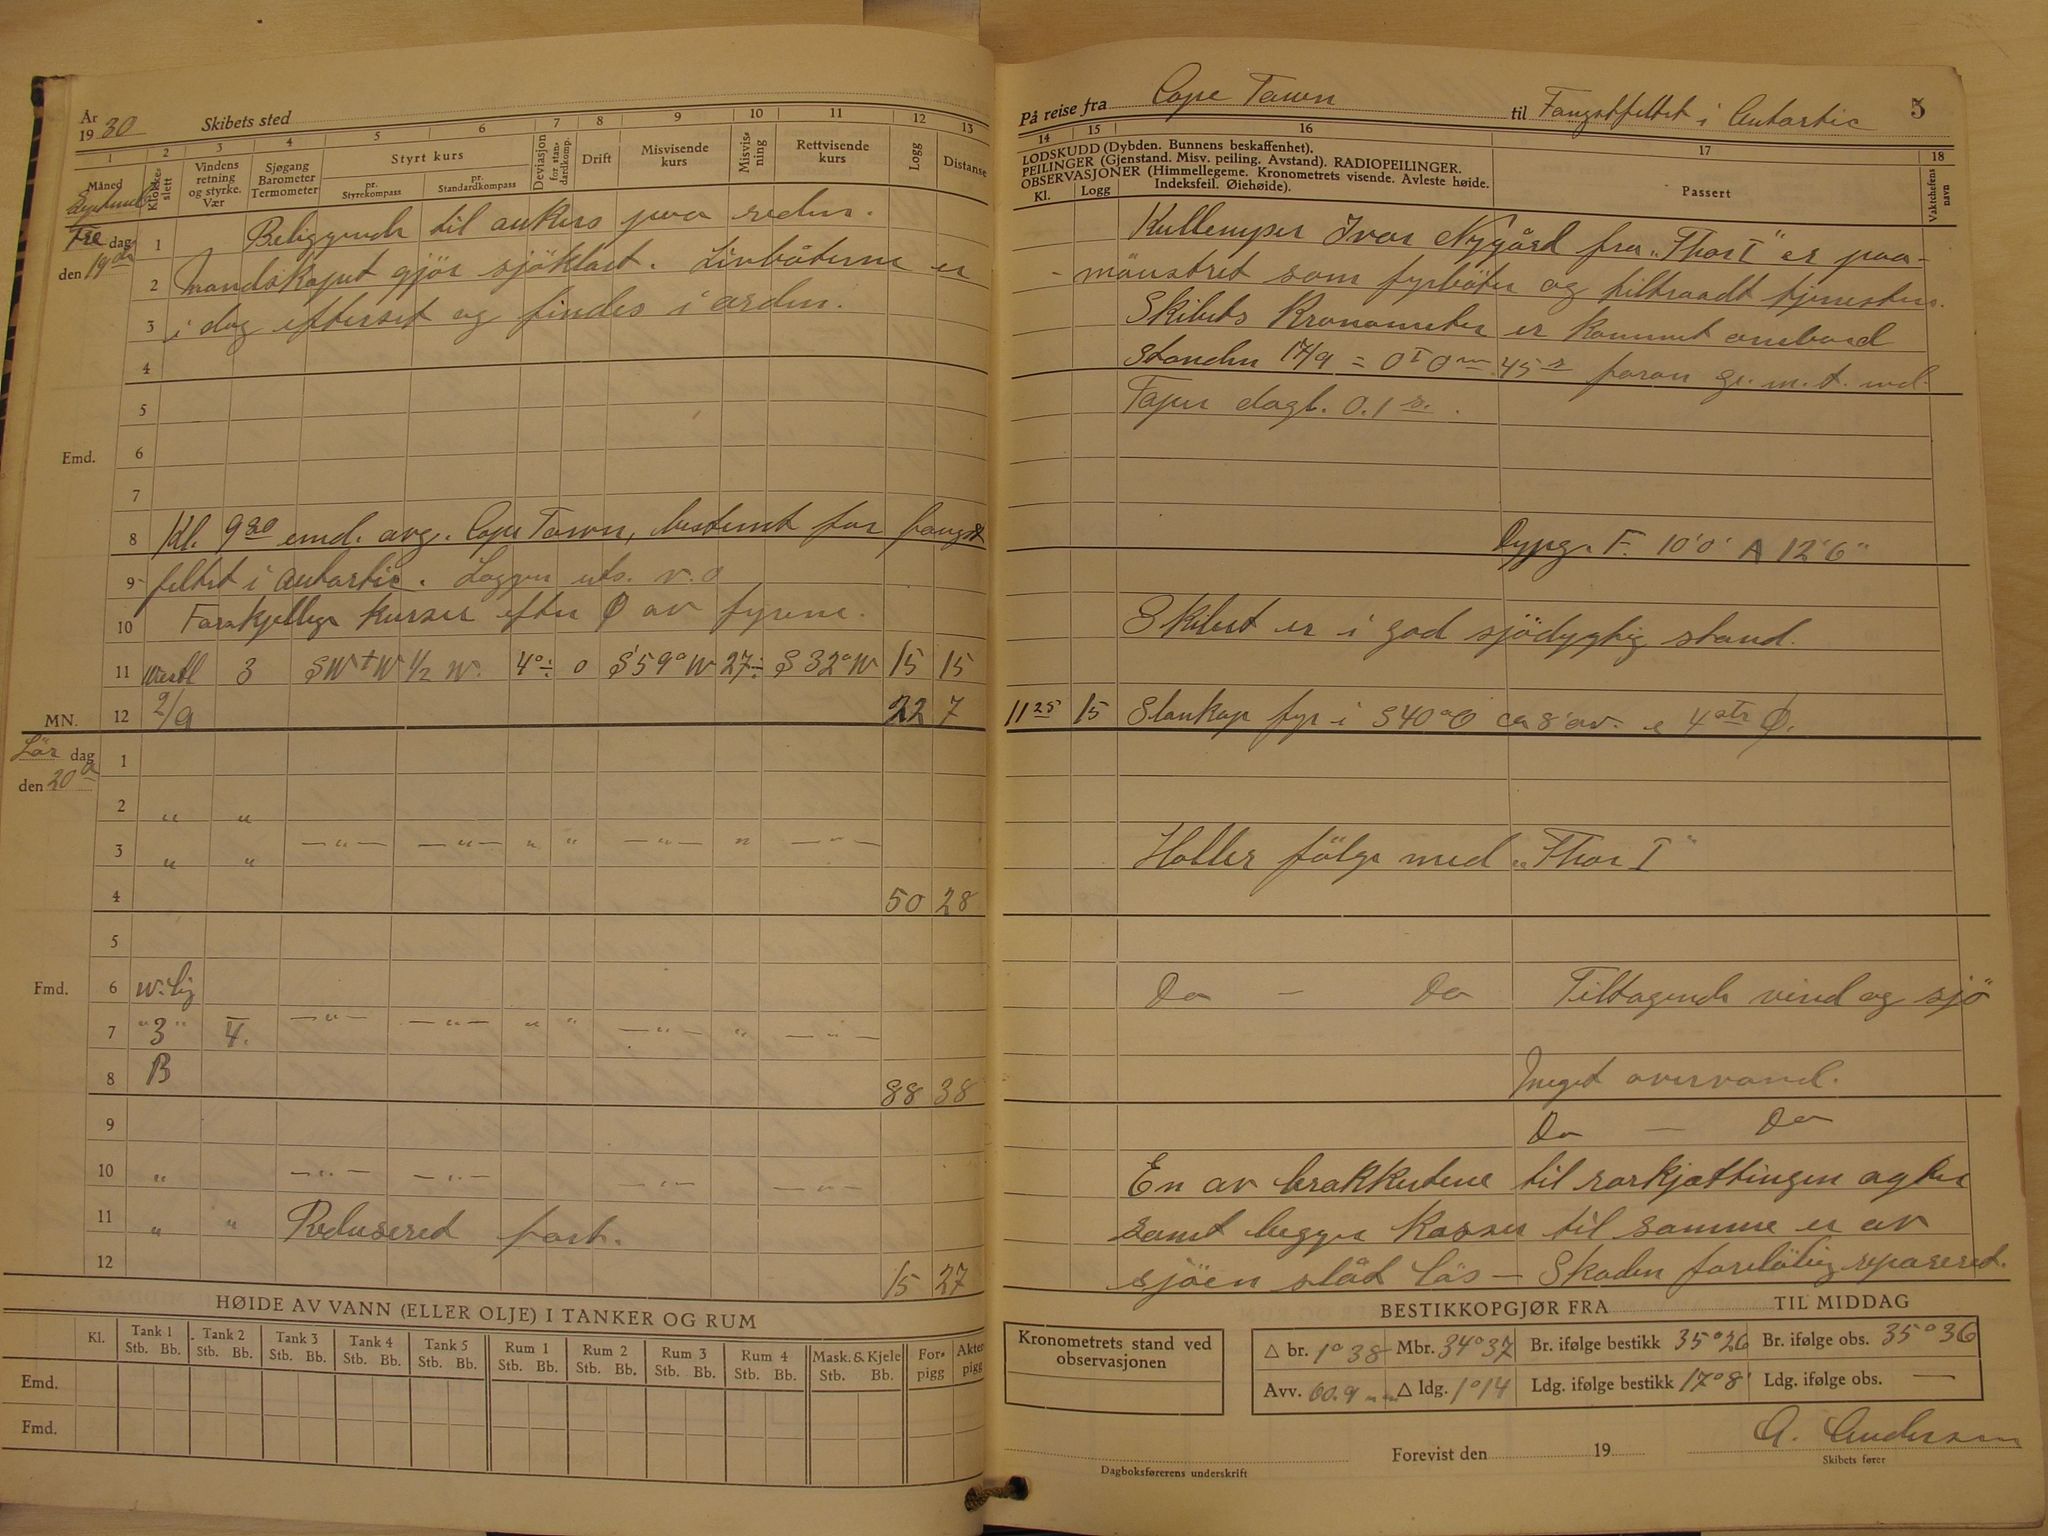 År
1930 Skibets sted
1 2 3 4 5 6 7 8 9 10 11 12 13
Måned
Klokkeslett
Vindens retning og styrke. Vær
Sjøgang Barometer Termometer
Styrt kurs
pr. Styrekompass
pr. Standardkompass
Deviasjon for standardkomp.
Drift
Misvisende kurs
Misvisning
Rettvisende kurs
Logg
Distanse
Fre dag den 19de
1 Beliggende til ankers paa reden.
2 Mandskapet gjör sjöklart. Livbåterne er
3 i dag efterset og findes i orden.
4
5
Emd. 6
7
8 Kl. 9 30 emd. avg. Cape Town, bestemt for fangst
9 feltet i Antartic. Loggen uts. v. o
10 Forskjellige kurser efter Ø av fyrene.
11 Vestl 3 SW t W 1/2 W. 4° ÷ 0 S 59° W 27 ÷ S 32° W 15 15
MN. 12 2/9 22 7
Lör dag den 20de
1
2 " "
3 " " — " — — " — " " — " — " — " —
4 50 28
5
Fmd. 6 W.lig
7 "3" 4. — " — — " — " " — " — " — " —
8 B 88 38
9
10 " — " — — " — — " — — " —
11 " " Redusered fart.
12 15 27
HØIDE AV VANN (ELLER OLJE) I TANKER OG RUM
Kl. Tank 1 Tank 2 Tank 3 Tank 4 Tank 5 Rum 1 Rum 2 Rum 3 Rum 4 Mask. & Kjele Forpigg Akterpigg
Stb. Bb. Stb. Bb. Stb. Bb. Stb. Bb. Stb. Bb. Stb. Bb. Stb. Bb. Stb. Bb. Stb. Bb. Stb. Bb.
Emd.
Fmd.
På reise fra Cape Town til Fangstfeltet i Antartic 5
14 15 16 17 18
LODSKUDD (Dybden. Bunnens beskaffenhet).
PEILINGER (Gjenstand. Misv. peiling. Avstand). RADIOPEILINGER.
OBSERVASJONER (Himmellegeme. Kronometrets visende. Avleste høide.
Indeksfeil. Øiehøide).
Kl. Logg
Passert
Vakthefens navn
Kullemper Ivar Nygård fra „Thor I" er paa-
mönstret som fyrböter og tiltraadt tjenesten.
Skibets Kronometer er kommet ombord
Standen 17/9 = 0 T 0 m 45 s foran gr. m. t. md.
Taper dagl. 0.1 s.
Dypg. F. 10'0" A 12'6"
Skibet er i god sjödygtig stand.
11 25 15 Slankop fyr i S 40° O ca 8' av. e 4 str Ø.
Holder fölge med „Thor I"
Do — Do Tiltagende vind og sjö
Meget overvand.
Do — Do
En av brakketene til rorkjættingen agter
samt begge kasser til samme er av
sjöen slåt lös — Skaden foreløbig reparert.
BESTIKKOPGJØR FRA TIL MIDDAG
Kronometrets stand ved observasjonen
△ br. 1° 38 Mbr. 34° 37 Br. ifølge bestikk 35° 26 Br. ifølge obs. 35° 36
Avv. 60.9 △ ldg. 1° 14 Ldg. ifølge bestikk 17° 8' Ldg. ifølge obs. —
A. Andersen
Forevist den 19
Dagboksførerens underskrift
Skibets fører